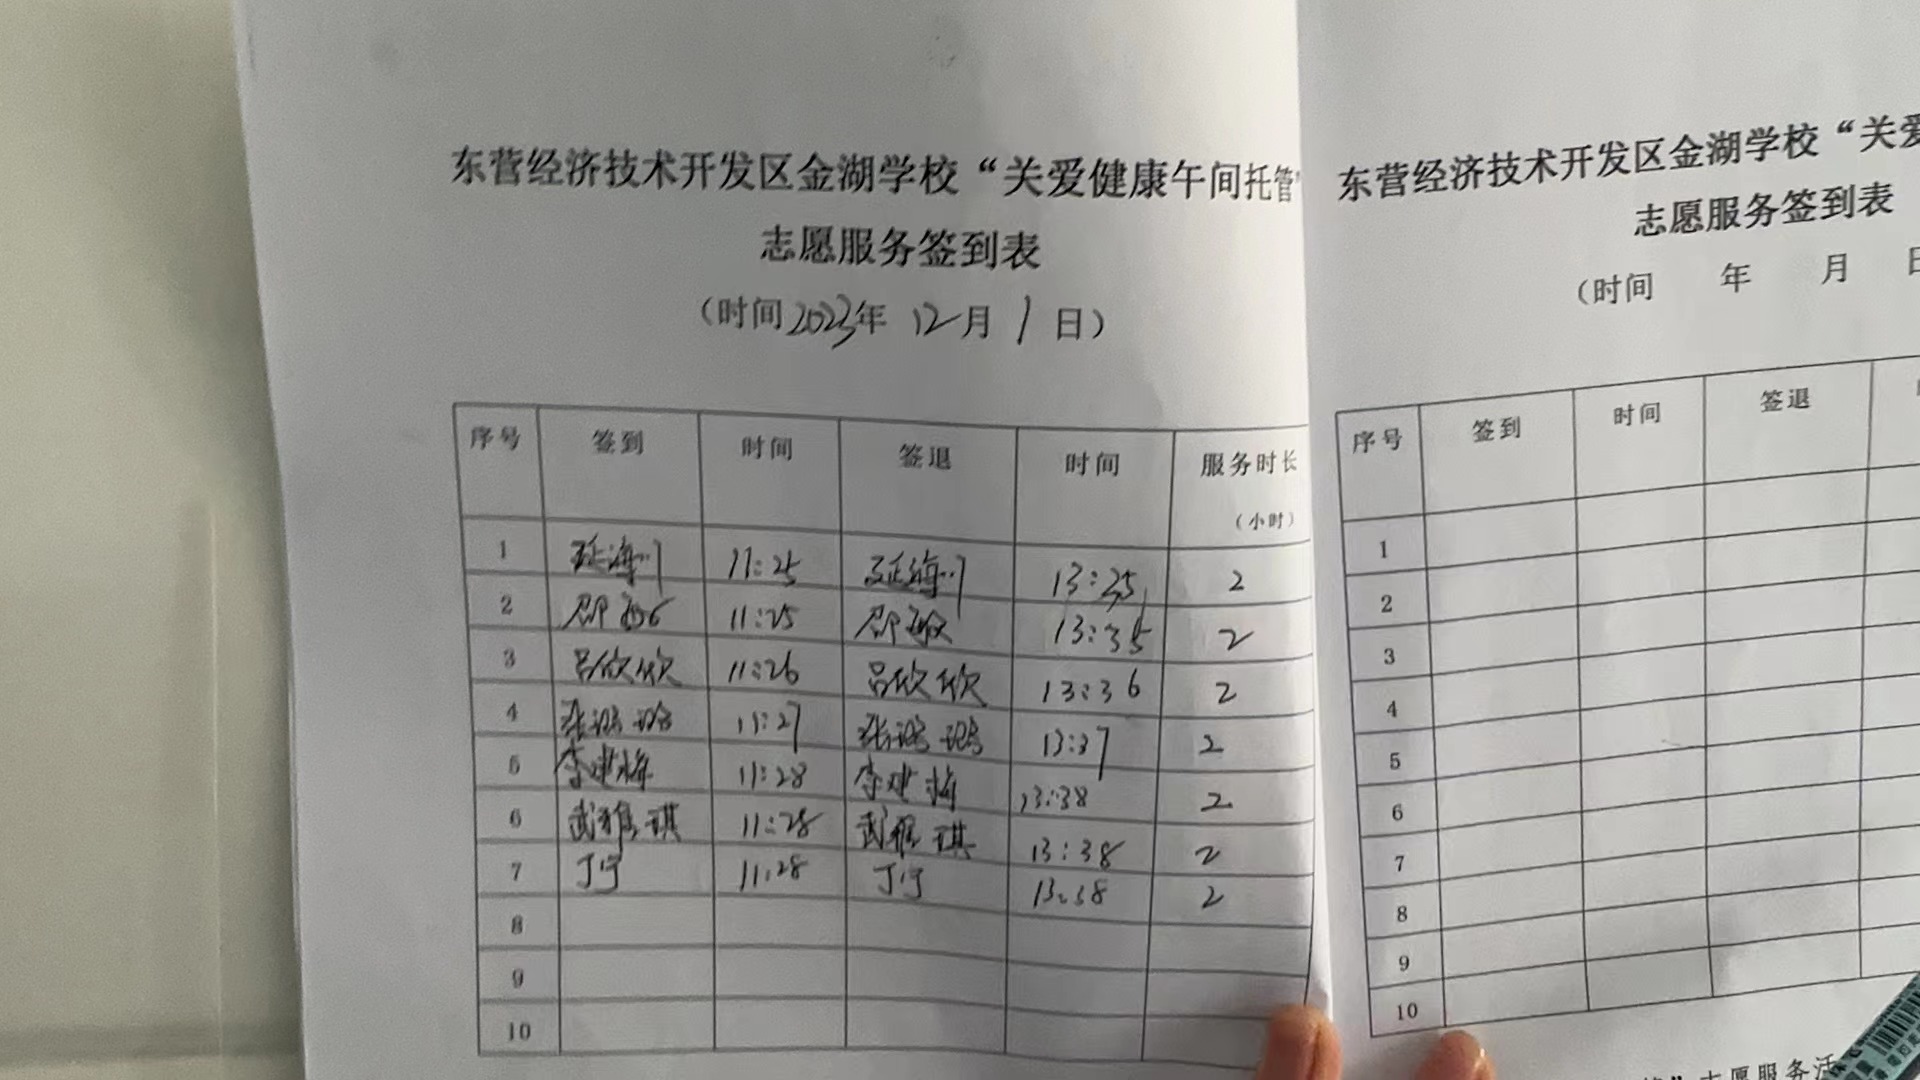 东营经济技术开发区金湖学校“关爱健康午间托管”
志愿服务签到表
（时间2023年 12月 1 日）
序号 签到 时间 签退 时间 服务时长
（小时）
1 延海川 11:25 延海川 13:35 2
2 邵 11:25 邵 13:35 2
3 吕欣欣 11:26 吕欣欣 13:36 2
4 张 11:27 张 13:37 2
5 李建梅 11:28 李建梅 13:38 2
6 武雅琪 11:28 武雅琪 13:38 2
7 丁宁 11:28 丁宁 13:38 2
8
9
10
东营经济技术开发区金湖学校“关爱
志愿服务签到表
（时间 年 月 日
序号 签到 时间 签退
1
2
3
4
5
6
7
8
9
10
”志愿服务活